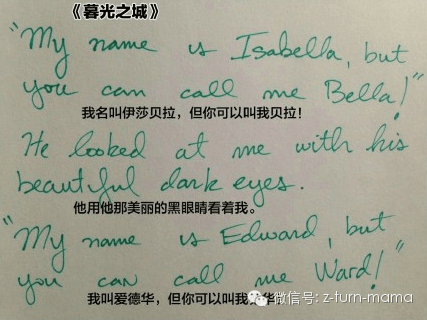 《暮光之城》
"My name is Isabella, but
you can call me Bella!"
我名叫伊莎贝拉，但你可以叫我贝拉！
He looked at me with his
beautiful dark eyes.
他用他那美丽的黑眼睛看着我。
"My name is Edward, but
you can call me Ward!"
我叫爱德华，但你可以叫我
微信号: z-turn-mama